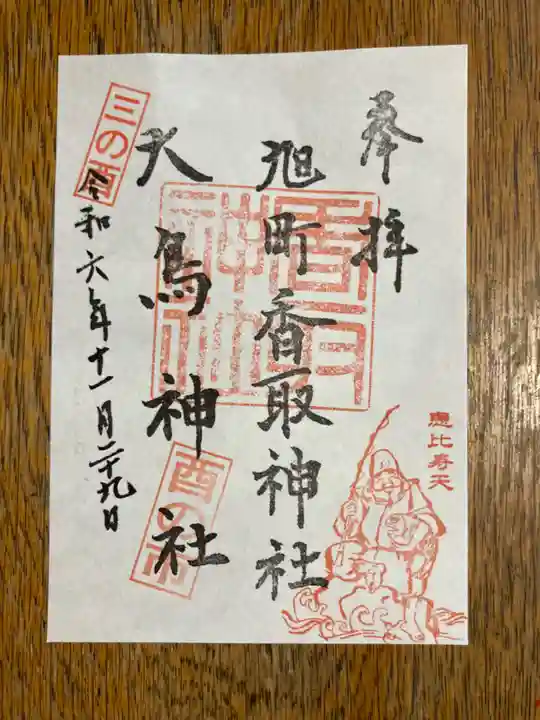 奉拝
恵比寿天
旭町香取神社
香取神社
大鳥神社
酉の市
三の酉
令和六年十一月二十九日